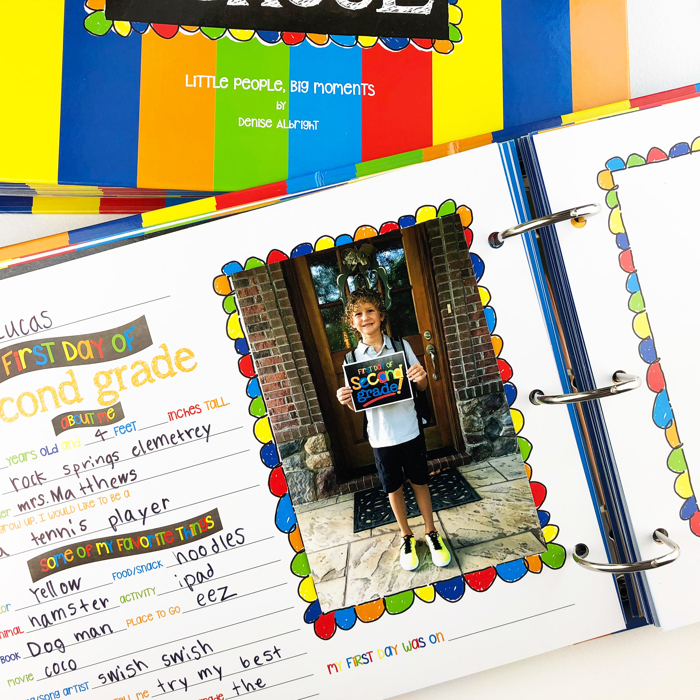 LITTLE PEOPLE, BIG MOMENTS
by
Denise Albright
Lucas
FIRST DAY OF
cond grade
about me
years old and 4 feet inches tall
rock springs elemetrey
er mrs. Matthews
grow up, I would like to be a
a tennis player
some of my favorite things
or Yellow food/snack noodles
nimal hamster activity ipad
book Dog man place to go eez
movie coco
g/song artist swish swish
try my best
the
first day of
second
grade!
my first day was on